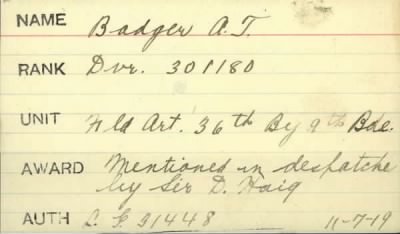 NAME Badger A.T.
RANK Dvr. 301180
UNIT Fld Art. 36th By 9th Bde.
AWARD Mentioned in despatche
by Sir D. Haig
AUTH L. G. 31448 11-7-19